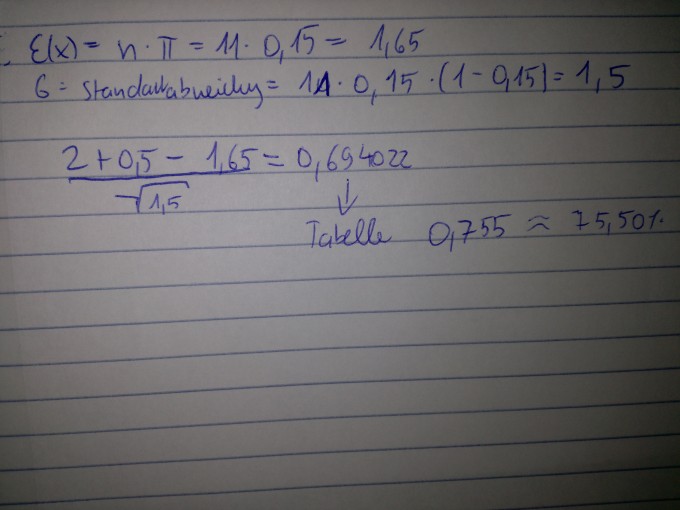 E(x) = n · π = 11 · 0,15 = 1,65
6 = Standardabweichung = 11 · 0,15 · (1 - 0,15) = 1,5
2 + 0,5 - 1,65 = 0,694022
√1,5
↓
Tabelle 0,755 ≈ 75,50%